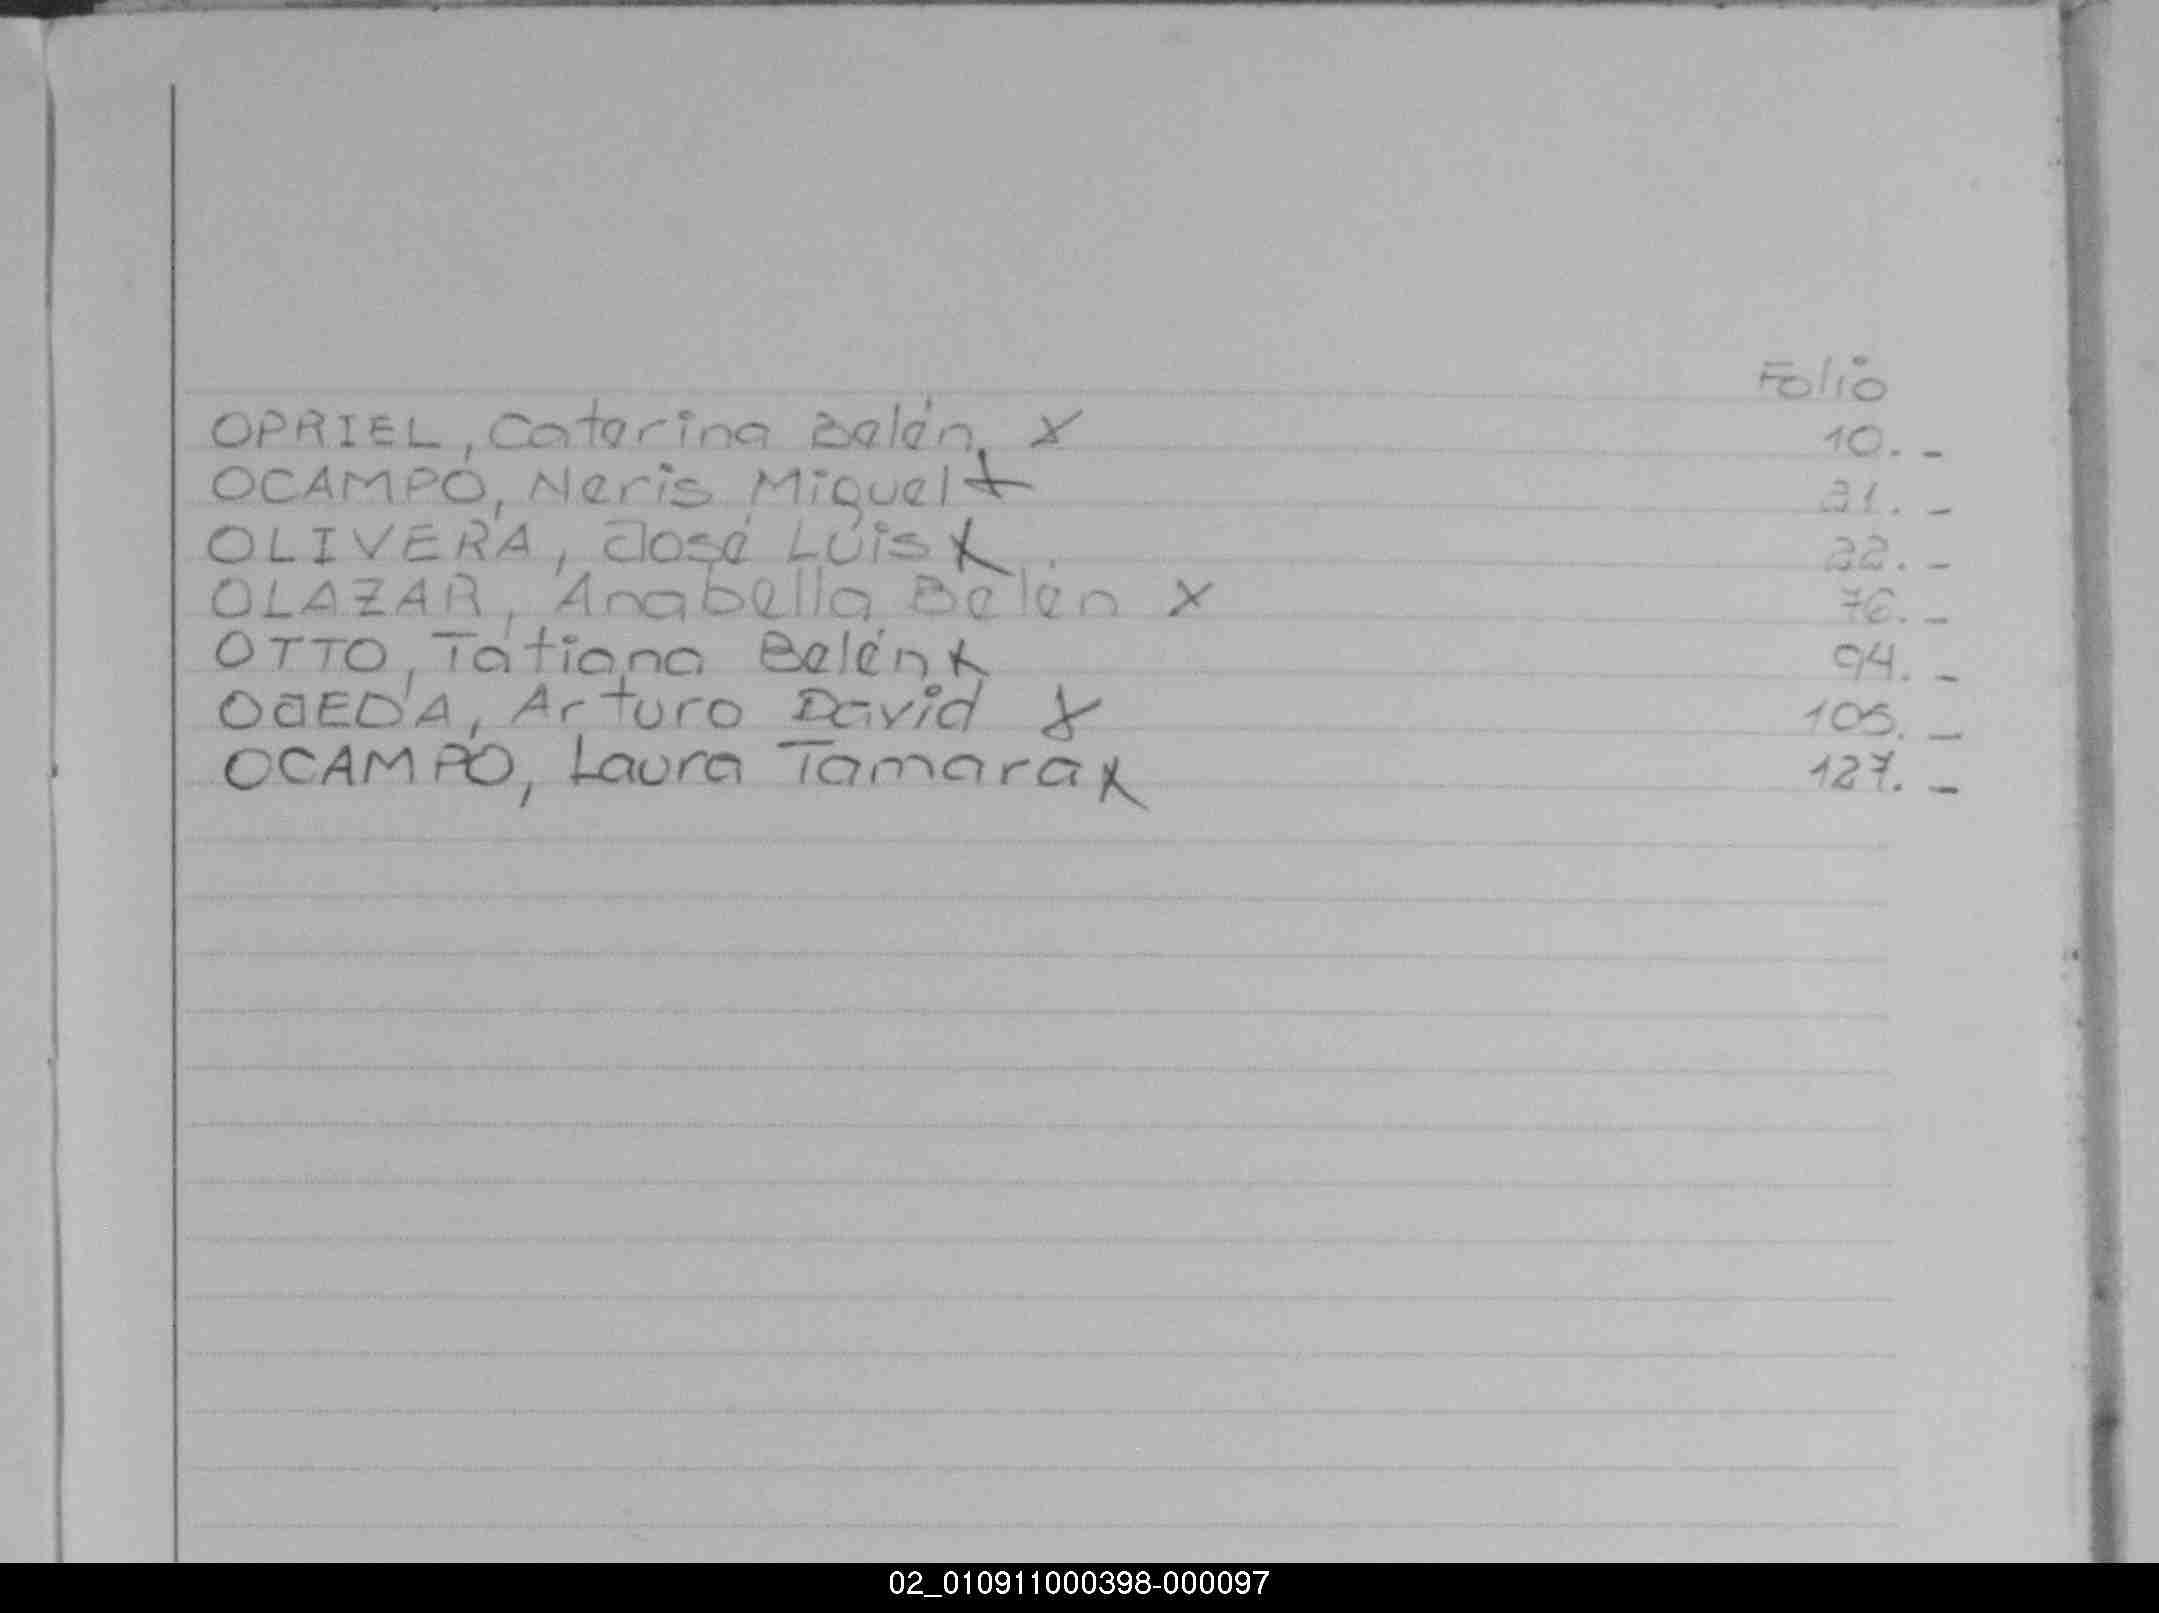 Folio
OPRIEL, Caterina Belén x 10.-
OCAMPO, Neris Miguel x 31.-
OLIVERA, José Luis x 32.-
OLAZAR, Anabella Belén x 76.-
OTTO, Tatiana Belén x 94.-
OJEDA, Arturo David x 105.-
OCAMPO, Laura Tamara x 127.-
02_010911000398-000097